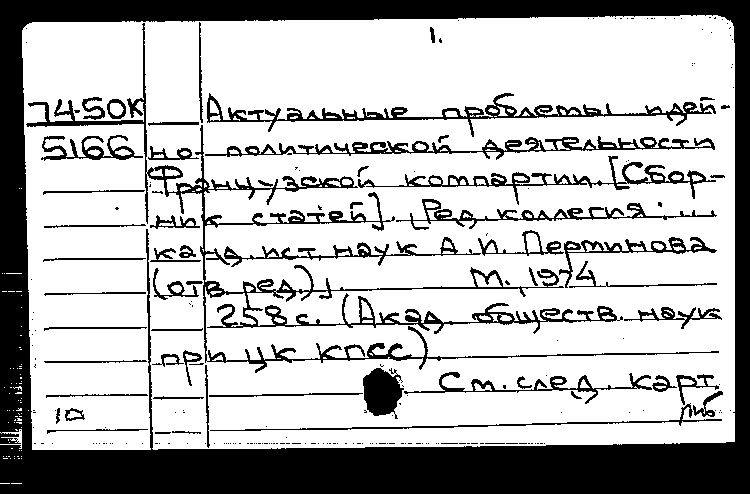 1.
74-50К Актуальные проблемы идей-
5166 но-политической деятельности
Французской компартии. [Сбор-
ник статей]. [Ред. коллегия: ...
канд. ист. наук А.И. Перминова
(отв. ред.)]. М., 1974.
258 с. (Акад. обществ. наук
при ЦК КПСС).
См. след. карт.